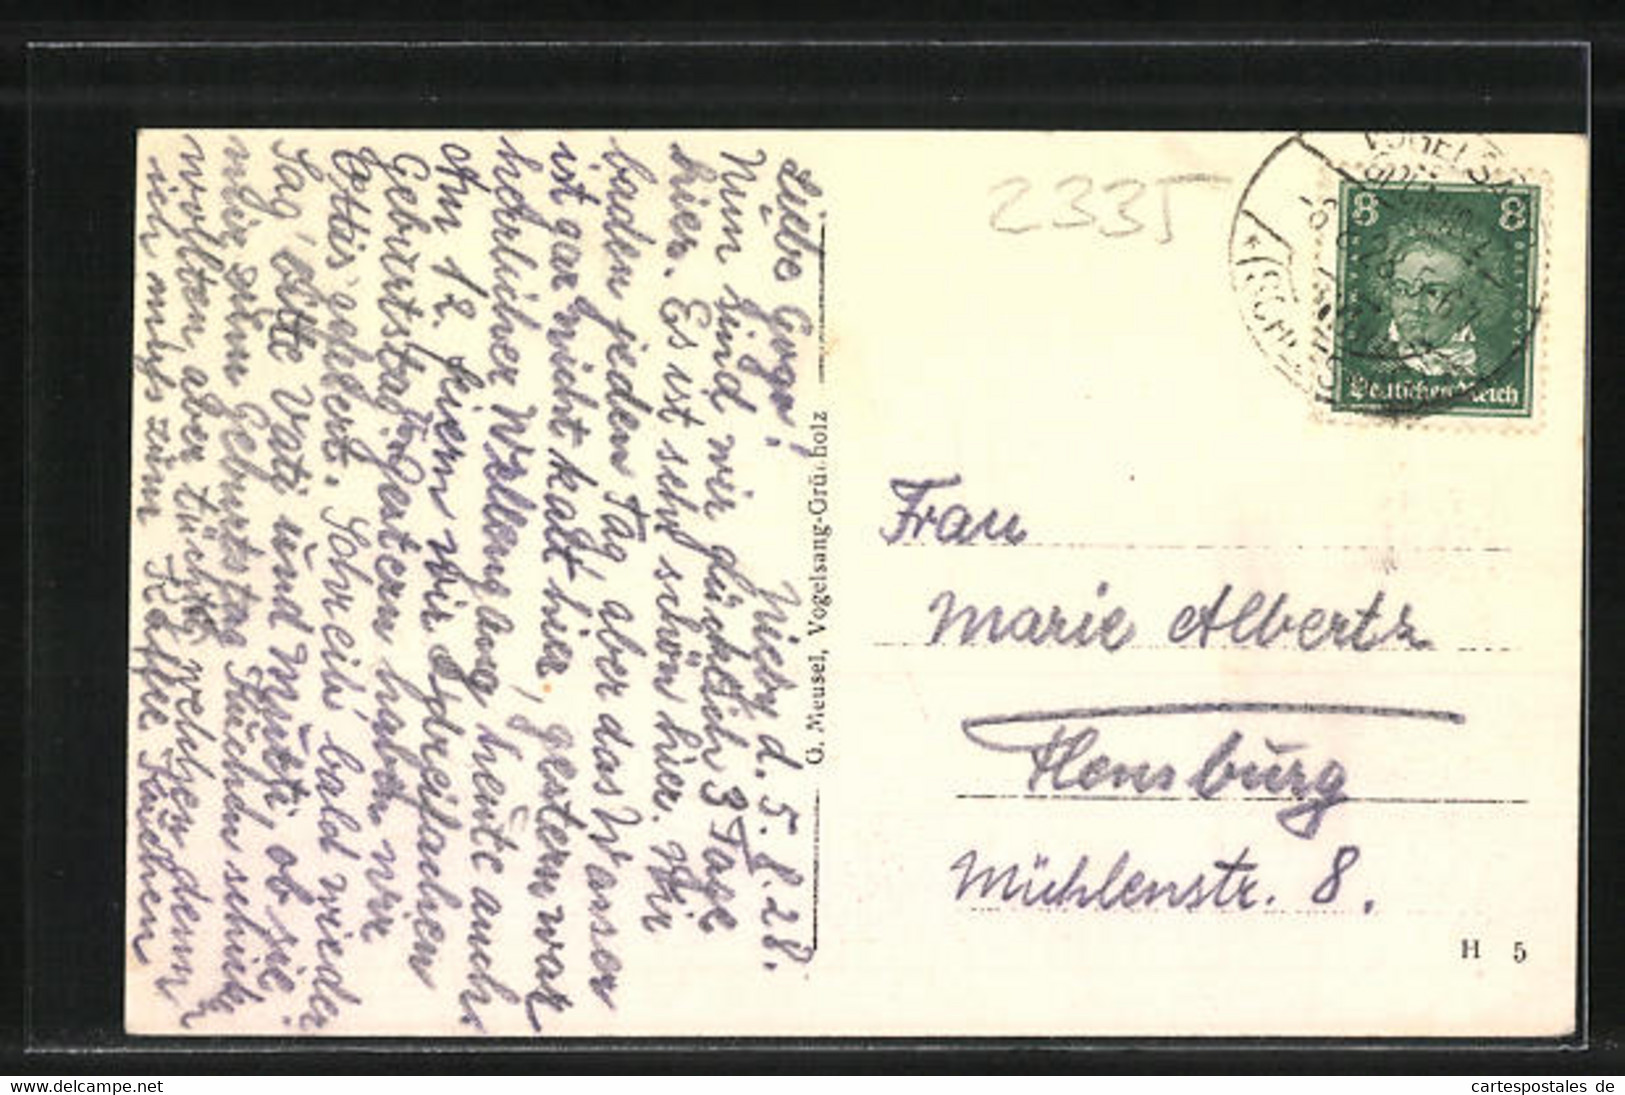 Niebÿ d. 5.8.28.
Liebe Goga!
Nun sind wir glücklich 3 Tage
hier. Es ist sehr schön hier. Wir
baden jeden Tag, aber das Wasser
ist gar nicht kalt hier, gestern war
herrlicher Wellengang heute auch.
Am 12. feiern wir dreifachen
Geburtstag. Gestern haben wir
Lottis gefeiert. Schreib bald wieder
Sag' bitte Vati und Mutti, ob sie
mir zum Geburtstag Kuchen schicken
wollten, aber tüchtig welchen denn
ich muss zum Kaffee Kuchen
G. Meusel, Vogelsang-Grünholz
2335
8 8
Deutsches Reich
Frau
Marie Albertz
Flensburg
Mühlenstr. 8.
H 5
www.delcampe.net
cartespostales de